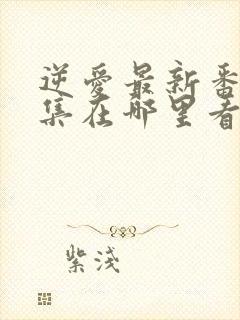 逆爱最新番
集在哪里看
紫浅